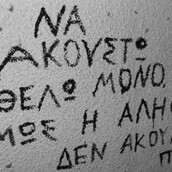 ΝΑ
ΑΚΟΥΣΤΩ
ΘΕΛΩ ΜΟΝΟ
ΜΩΣ Η ΑΛΗ
ΔΕΝ ΑΚΟΥ
Π